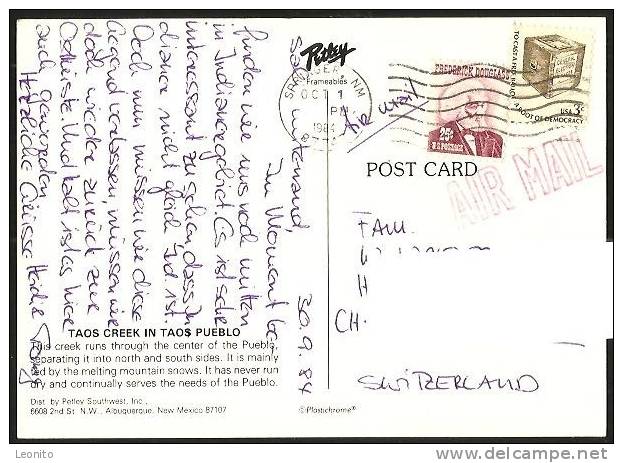 30.9.84
Salü zäme,
Im Moment be-
finden wir uns noch mitten
in Indianergebiet. Es ist sehr
interessant zu sehen, dass In-
dianer nicht gleich Ind. ist.
Doch nun müssen wir diese
Gegend verlassen, müssen wir
doch wieder zurück zur
Ostküste. Und kalt ist es hier
auch geworden.
Herzliche Grüsse Heidi +
Petley
Frameables
SANTA FE, NM
OCT 1
PM
1984
FREDERICK DOUGLASS
25¢
U.S. POSTAGE
TO CAST A FREE BALLOT
A ROOT OF DEMOCRACY
USA 3c
Air Mail
POST CARD
AIR MAIL
FAM.
H
CH-
SWITZERLAND
TAOS CREEK IN TAOS PUEBLO
This creek runs through the center of the Pueblo,
separating it into north and south sides. It is mainly
fed by the melting mountain snows. It has never run
dry and continually serves the needs of the Pueblo.
Dist. by Petley Southwest, Inc.,
6608 2nd St. N.W., Albuquerque, New Mexico 87107
© Plastichrome®
delcampe.net